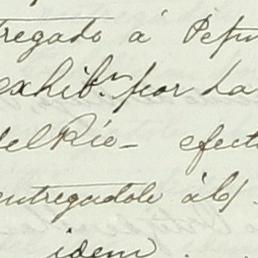 tregado á Pepu
exhib.n por La
del Rio — efect
entregadole ál
idem . .